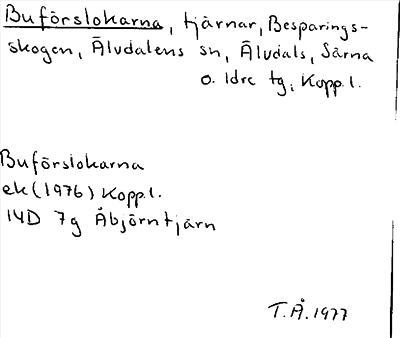 Buförslokarna, tjärnar, Besparings-
skogen, Älvdalens sn, Älvdals, Särna
o. Idre tg, Kopp.l.
Buförslokarna
ek (1976) Kopp.l.
14D 7g Åbjörntjärn
T.Å. 1977